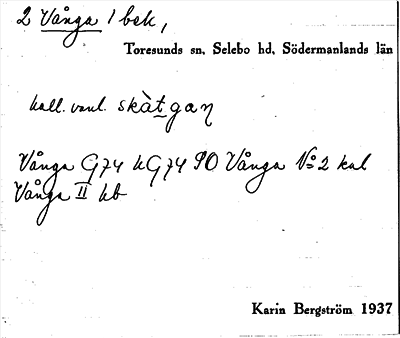 2 Vånga 1 bek,
Toresunds sn, Selebo hd, Södermanlands län
kall. vanl. skàtgaŋ
Vånga G74 kG74 PO Vånga No 2 kal
Vånga II kb
Karin Bergström 1937